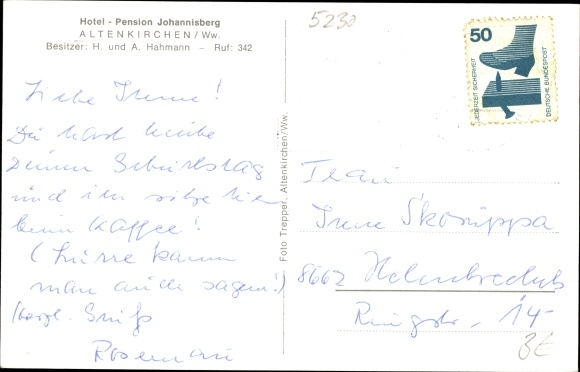 Hotel - Pension Johannisberg
ALTENKIRCHEN/Ww.
Besitzer: H. und A. Hahmann – Ruf: 342
5230
50
JEDERZEIT SICHERHEIT
DEUTSCHE BUNDESPOST
Liebe Irene!
Du hast heute
Deinen Geburtstag
und ich sitze hier
beim Kaffee!
( kann
man auch sagen!)
Herzl. Gruß
Foto Trepper, Altenkirchen/Ww.
Frau
Irene Skorüppa
8662 Helmbrechts
Ringstr. 14